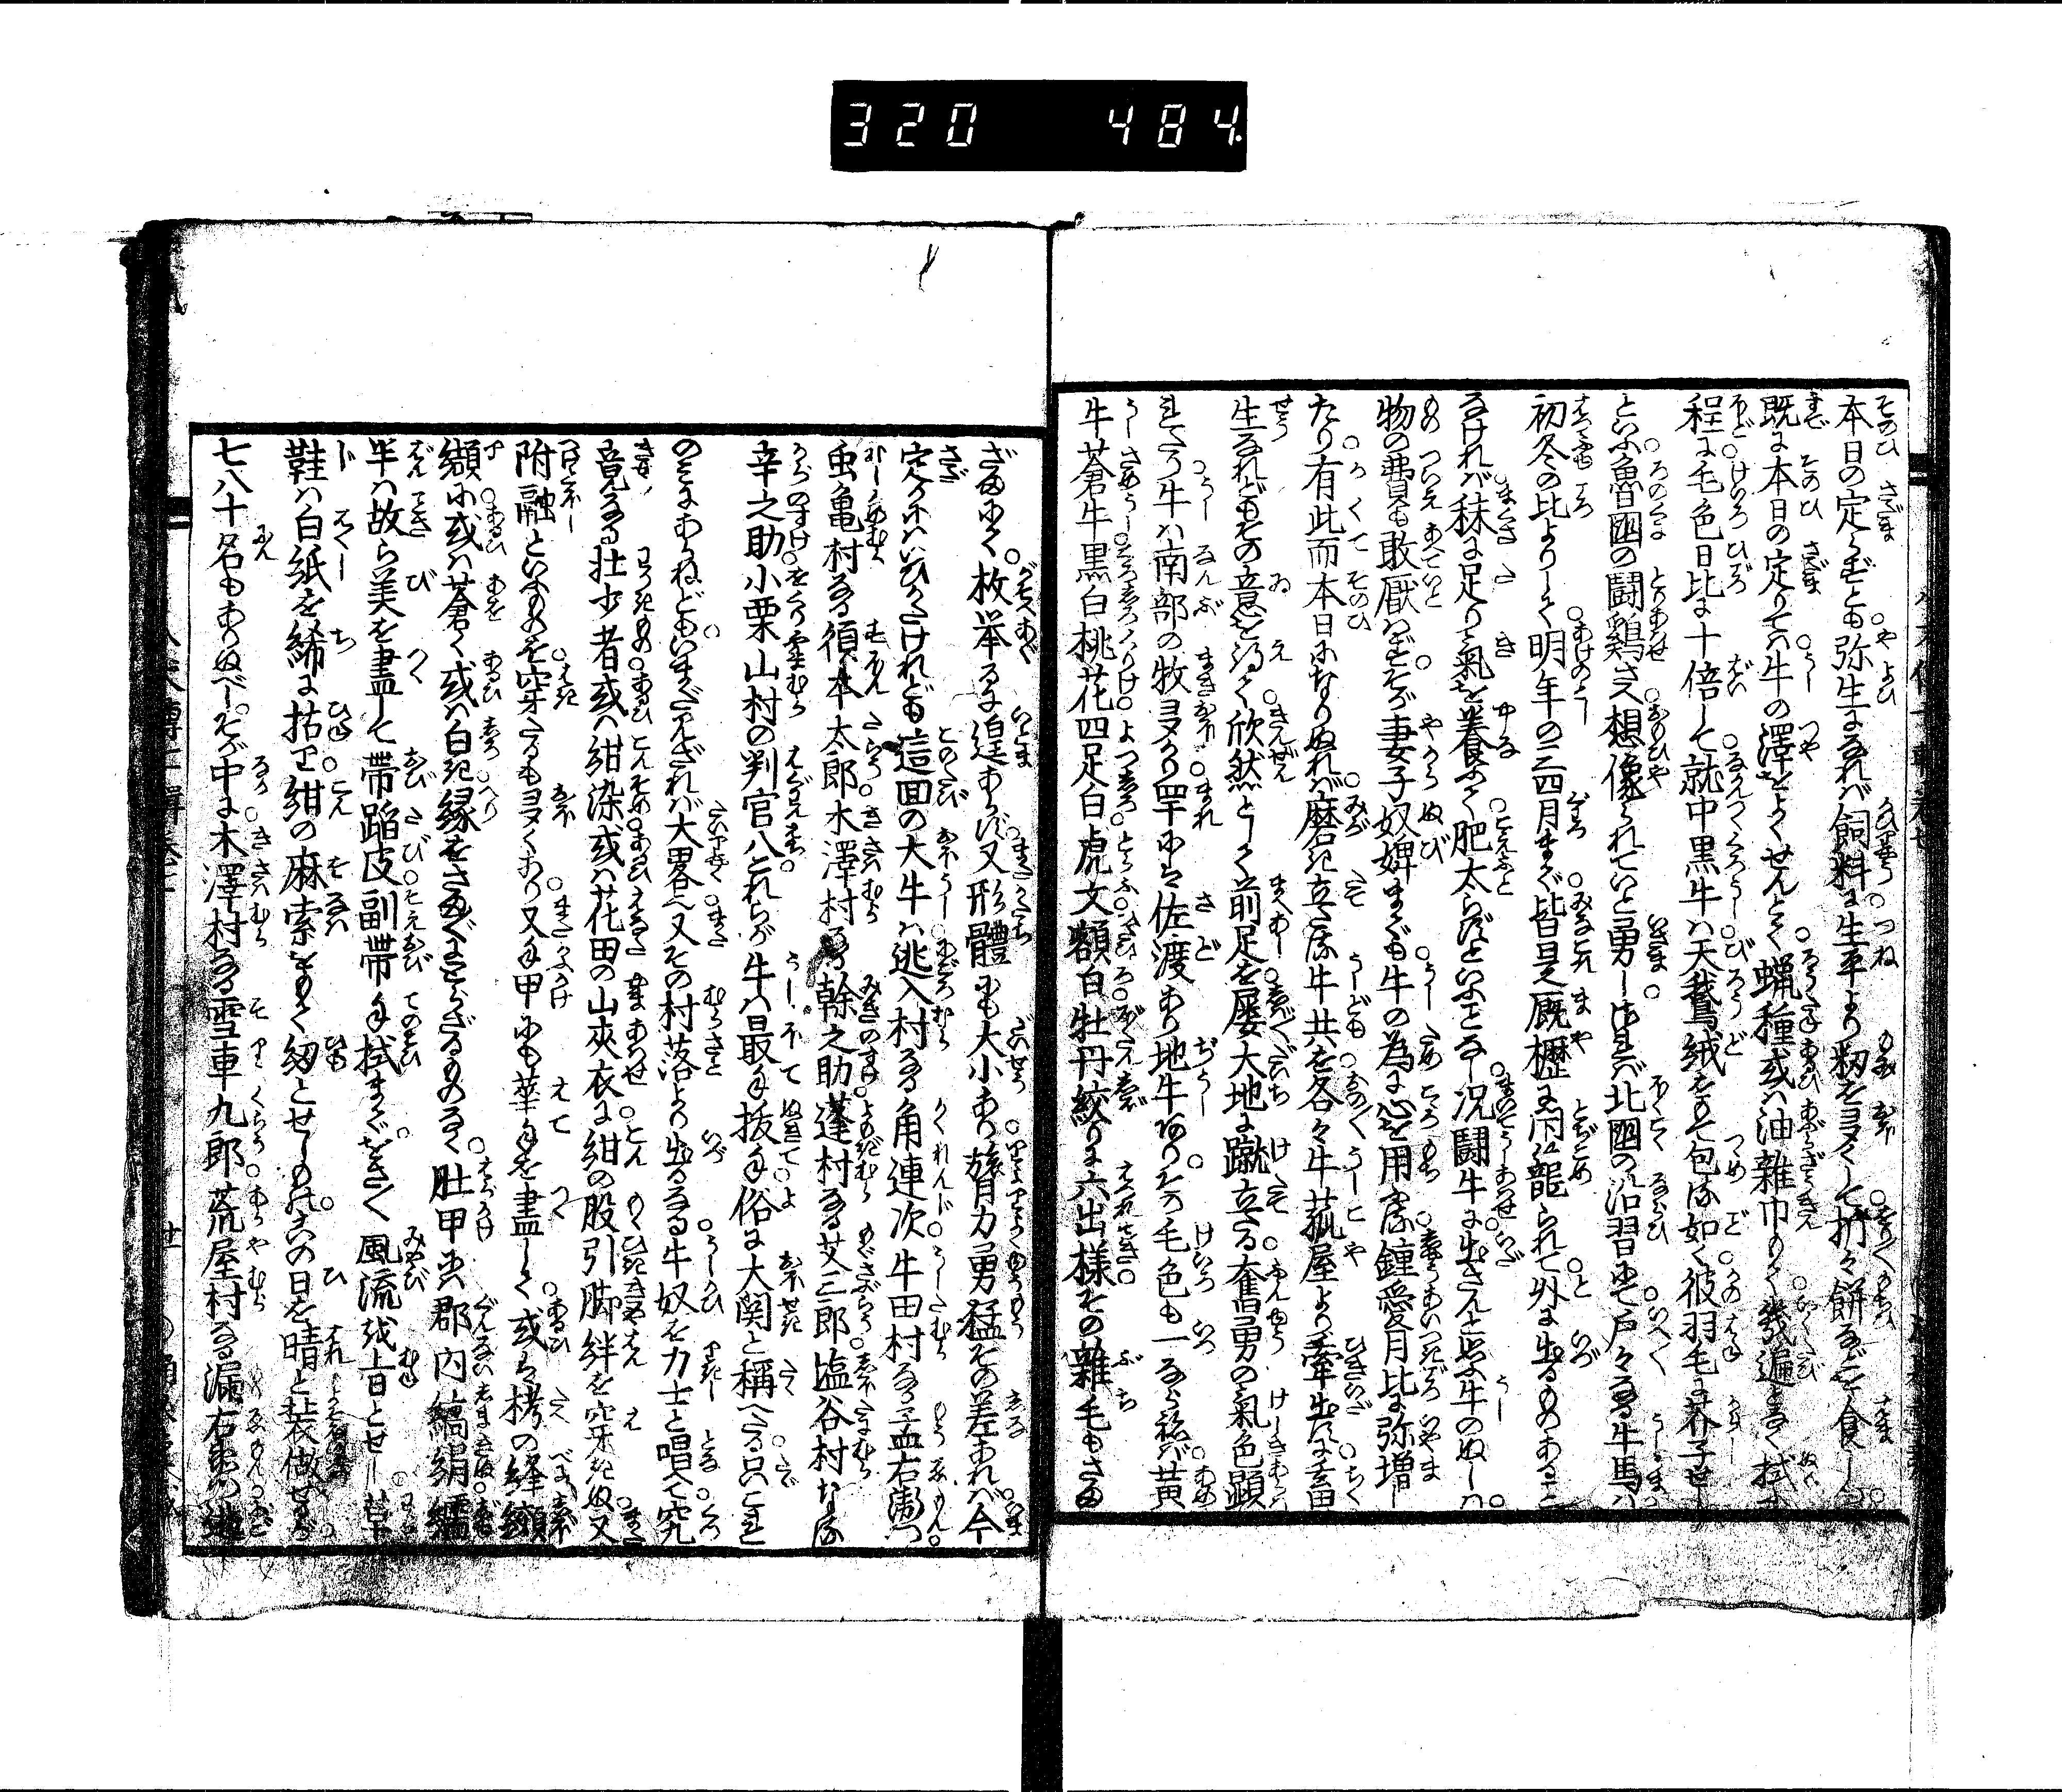 320 484
本日の定らずとも弥生になれば飼料に生平より籾をヨクして折々餅などを食しつ
既に本日の定りては牛の澤をよくせんとて蝋種或は油雜巾もて幾遍となく拭ふ
程に毛色日比に十倍して就中黒牛は天鵞絨をもて包る如く彼羽毛に芥子せし
といふ魯国の闘鶏さえ想像られていと勇しければ北国の沿習にて戸々なる牛馬は
初冬の比よりして明年の三四月まで皆是厩櫪に閉籠られて外に出るものあること
なければ秣に足り氣を養ふて肥太らずといふことなし况闘牛に出さんと思ふ牛のぬしは
物の費も敢厭はずそが妻子奴婢までも牛の為に心を用る鍾愛月比に弥増し
たり有此而本日になりぬれば磨き立たる牛共を各々牛菰屋より牽出すに畜
生なれどもその意を得て欣然として前足を屡大地に蹴立る奮勇の氣色顕
れたり牛は南部の牧ヨリ罕には佐渡あり地牛ありその毛色も一ならねば黄
牛蒼牛黒白桃花四足白虎文額白牡丹絞りに六出様その雜毛もさま
ざまにて枚挙るに遑あらず又形體にも大小あり膂力勇猛その差あれば今
定かにはいひがたけれども這回の大牛は逃入村なる角連次牛田村なる孟右衛門
虫亀村なる須本太郎木澤村なる幹之助蓬村なる艾三郎塩谷村なる
辛之助小栗山村の判官八これらが牛は最手抜手俗に大関と稱へたる只これ
のみにあらねどもいまだみざれば大畧也又その村落より出るなる牛奴を力士と唱て究
竟なる壮少者或は紺染或は花田の山夾衣に紺の股引脚絆を穿きぬ又
附融といふものを穿たるもヨクあり又手甲にも華手を盡して或は栲の絳纈
纈に或は蒼く或は白き縁をさまざまにとらざるものなく肚甲は郡内縞絹繻
半は故ら美を盡して帯蹈皮副帯手拭までをさく風流を旨とせし草
鞋は白紙を絺に括て紺の麻索をもて紐とせしもけふの日を晴と装做せしが
七八十名もありぬべしそが中に木澤村なる雪車九郎荒屋村なる漏右衛門